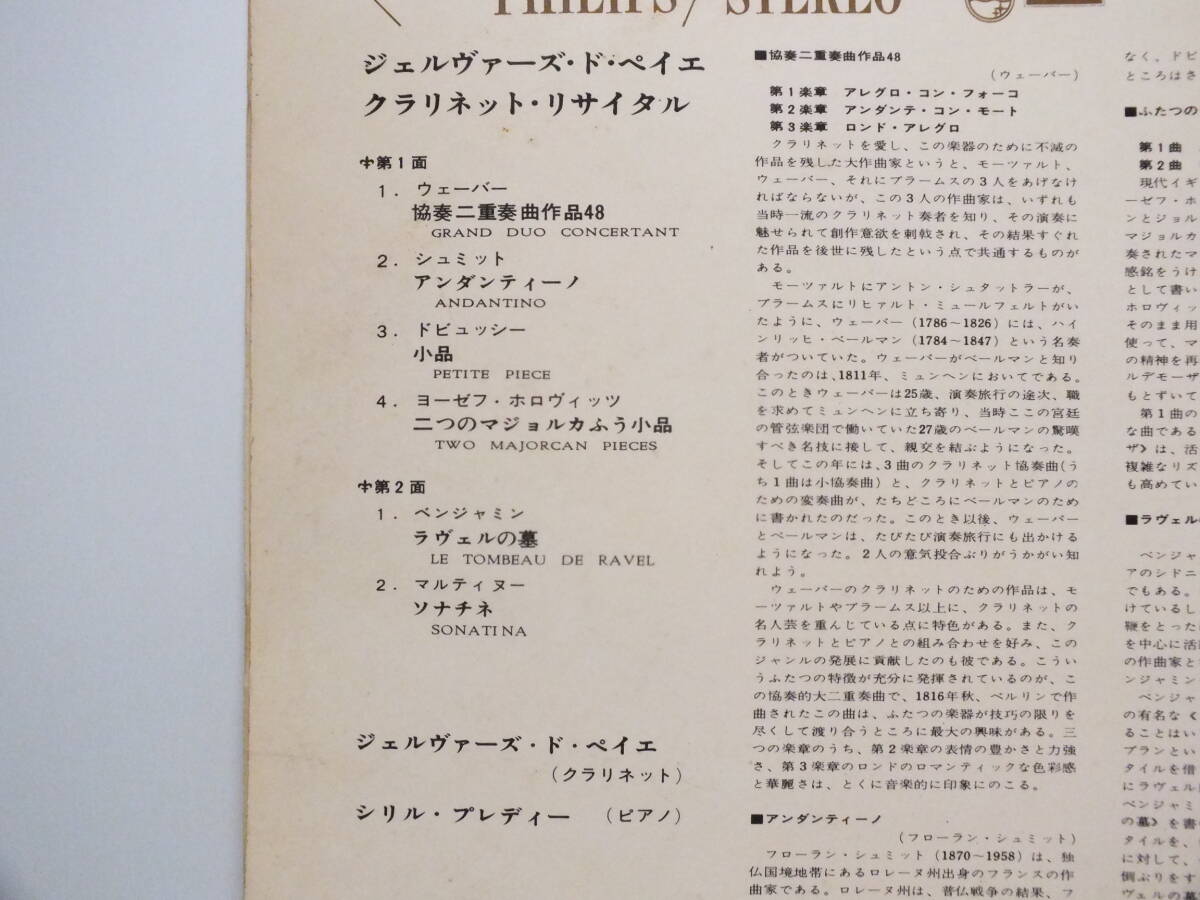 PHILIPS / STEREO
ジェルヴァーズ・ド・ペイエ
クラリネット・リサイタル
第1面
1. ウェーバー
協奏二重奏曲作品48
GRAND DUO CONCERTANT
2. シュミット
アンダンティーノ
ANDANTINO
3. ドビュッシー
小品
PETITE PIECE
4. ヨーゼフ・ホロヴィッツ
二つのマジョルカふう小品
TWO MAJORCAN PIECES
第2面
1. ベンジャミン
ラヴェルの墓
LE TOMBEAU DE RAVEL
2. マルティヌー
ソナチネ
SONATINA
ジェルヴァーズ・ド・ペイエ
(クラリネット)
シリル・プレディー (ピアノ)
■協奏二重奏曲作品48
(ウェーバー)
第1楽章 アレグロ・コン・フォーコ
第2楽章 アンダンテ・コン・モート
第3楽章 ロンド・アレグロ
クラリネットを愛し、この楽器のために不滅の
作品を残した大作曲家というと、モーツァルト、
ウェーバー、それにブラームスの3人をあげなけ
ればならないが、この3人の作曲家は、いずれも
当時一流のクラリネット奏者を知り、その演奏に
魅せられて創作意欲を刺戟され、その結果すぐれ
た作品を後世に残したという点で共通するものが
ある。
モーツァルトにアントン・シュタットラーが、
ブラームスにリヒァルト・ミュールフェルトがい
たように、ウェーバー(1786〜1826)には、ハイ
ンリッヒ・ベールマン(1784〜1847)という名奏
者がついていた。ウェーバーがベールマンと知り
合ったのは、1811年、ミュンヘンにおいてである。
このときウェーバーは25歳、演奏旅行の途次、職
を求めてミュンヘンに立ち寄り、当時ここの宮廷
の管弦楽団で働いていた27歳のベールマンの驚嘆
すべき名技に接して、親交を結ぶようになった。
そしてこの年には、3曲のクラリネット協奏曲(う
ち1曲は小協奏曲)と、クラリネットとピアノの
ための変奏曲が、たちどころにベールマンのため
に書かれたのだった。このとき以後、ウェーバー
とベールマンは、たびたび演奏旅行にも出かける
ようになった。2人の意気投合ぶりがうかがい知
れよう。
ウェーバーのクラリネットのための作品は、モ
ーツァルトやブラームス以上に、クラリネットの
名人芸を重んじている点に特色がある。また、ク
ラリネットとピアノとの組み合わせを好み、この
ジャンルの発展に貢献したのも彼である。こうい
うふたつの特徴が充分に発揮されているのが、こ
の協奏的大二重奏曲で、1816年秋、ベルリンで作
曲されたこの曲は、ふたつの楽器が技巧の限りを
尽くして渡り合うところに最大の興味がある。三
つの楽章のうち、第2楽章の表情の豊かさと力強
さ、第3楽章のロンドのロマンティックな色彩感
と華麗さは、とくに音楽的に印象にのこる。
■アンダンティーノ
(フローラン・シュミット)
フローラン・シュミット(1870〜1958)は、独
仏国境地帯にあるロレーヌ州出身のフランスの作
曲家である。ロレーヌ州は、普仏戦争の結果、フ
なく、ドビ
ところはさ
■ふたつの
第1曲
第2曲
現代イギ
ーゼフ・ホ
ンとジョル
マジョルカ
奏されたマ
感銘をうけ
として書い
ホロヴィッ
そのまま用
使って、マ
の精神を再
ルデモーザ
もとずいて
第1曲の
な曲である
ザ》は、活
複雑なリズ
も高めてい
■ラヴェル
ベンジャ
アのシドニ
でもある。
けているし
鞭をとった
を中心に活
の作曲家と
ンジャミン
ベンジャ
の有名な《
ることはい
プランとい
タイルを借
にラヴェル
ベンジャミ
の墓》を書
タイルを、
に対して、
倒ぶりをす
ヴェルの墓